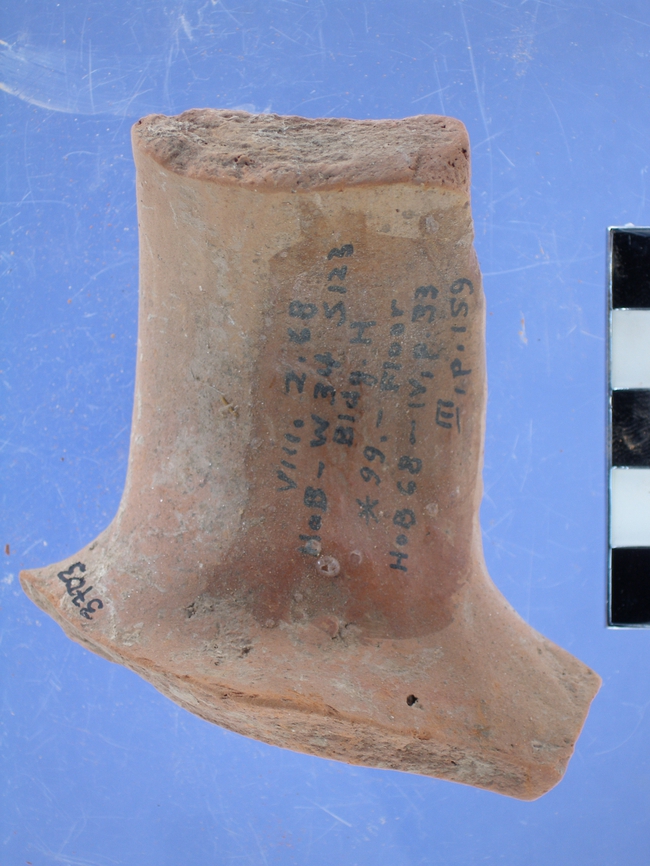 VIII. 2.68
HoB-W34 S122
Bldg. H
*99.-Floor
HoB68-IV, P.33
III, P.159
3703